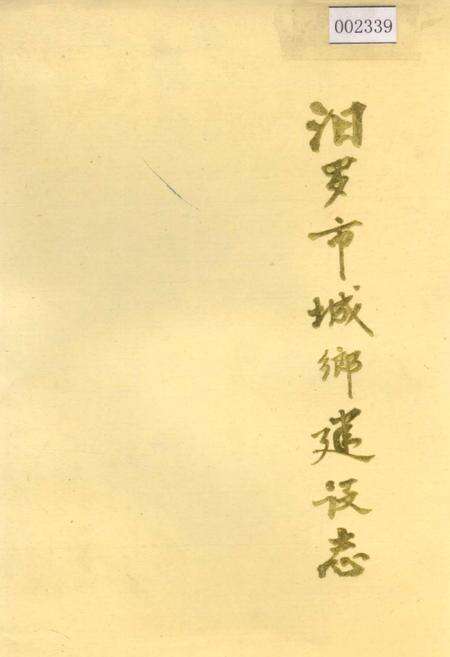 002339
汨罗市城鄉建设志